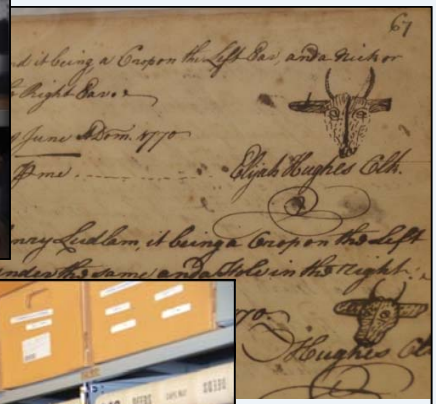 67
d it being a Crop on the Left Ear, and a Nick or
Right Ear.
June A Dom. 1770
p me
Elijah Hughes Clk.
nry Ludlam, it being a Crop on the Left
under the same and a Hole in the right.
70.
Hughes Cl
DEEDS